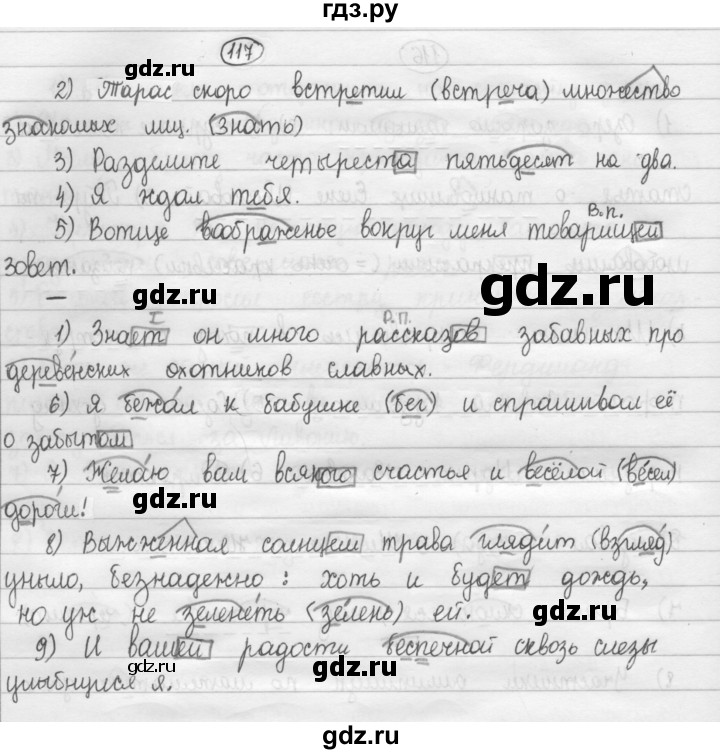 гдз.ру
117
gdz.ru
2) Тарас скоро встретил (встреча) множество
знакомых лиц. (Знать)
gdz.ru
3) Разделите четыреста пятьдесят на два.
4) Я ждал тебя.
В.п.
5) Вотще воображенье вокруг меня товарищей
зовет.
gdz.ru
gdz.ru
—
I Р.п.
1) Знает он много рассказов забавных про
деревенских охотников славных.
gdz.ru
6) Я бежал к бабушке (бег) и спрашивал её
о забытом
7) Желаю вам всякого счастья и весёлой (весел)
gdz.ru
дороги!
8) Выжженная солнцем трава глядит (взгляд)
уныло, безнадежно: хоть и будет дождь,
но уж не зеленеть (зелень) ей.
9) И вашей радости беспечной сквозь слезы
gdz.ru
gdz.ru
улыбнулся я.
gdz.ru